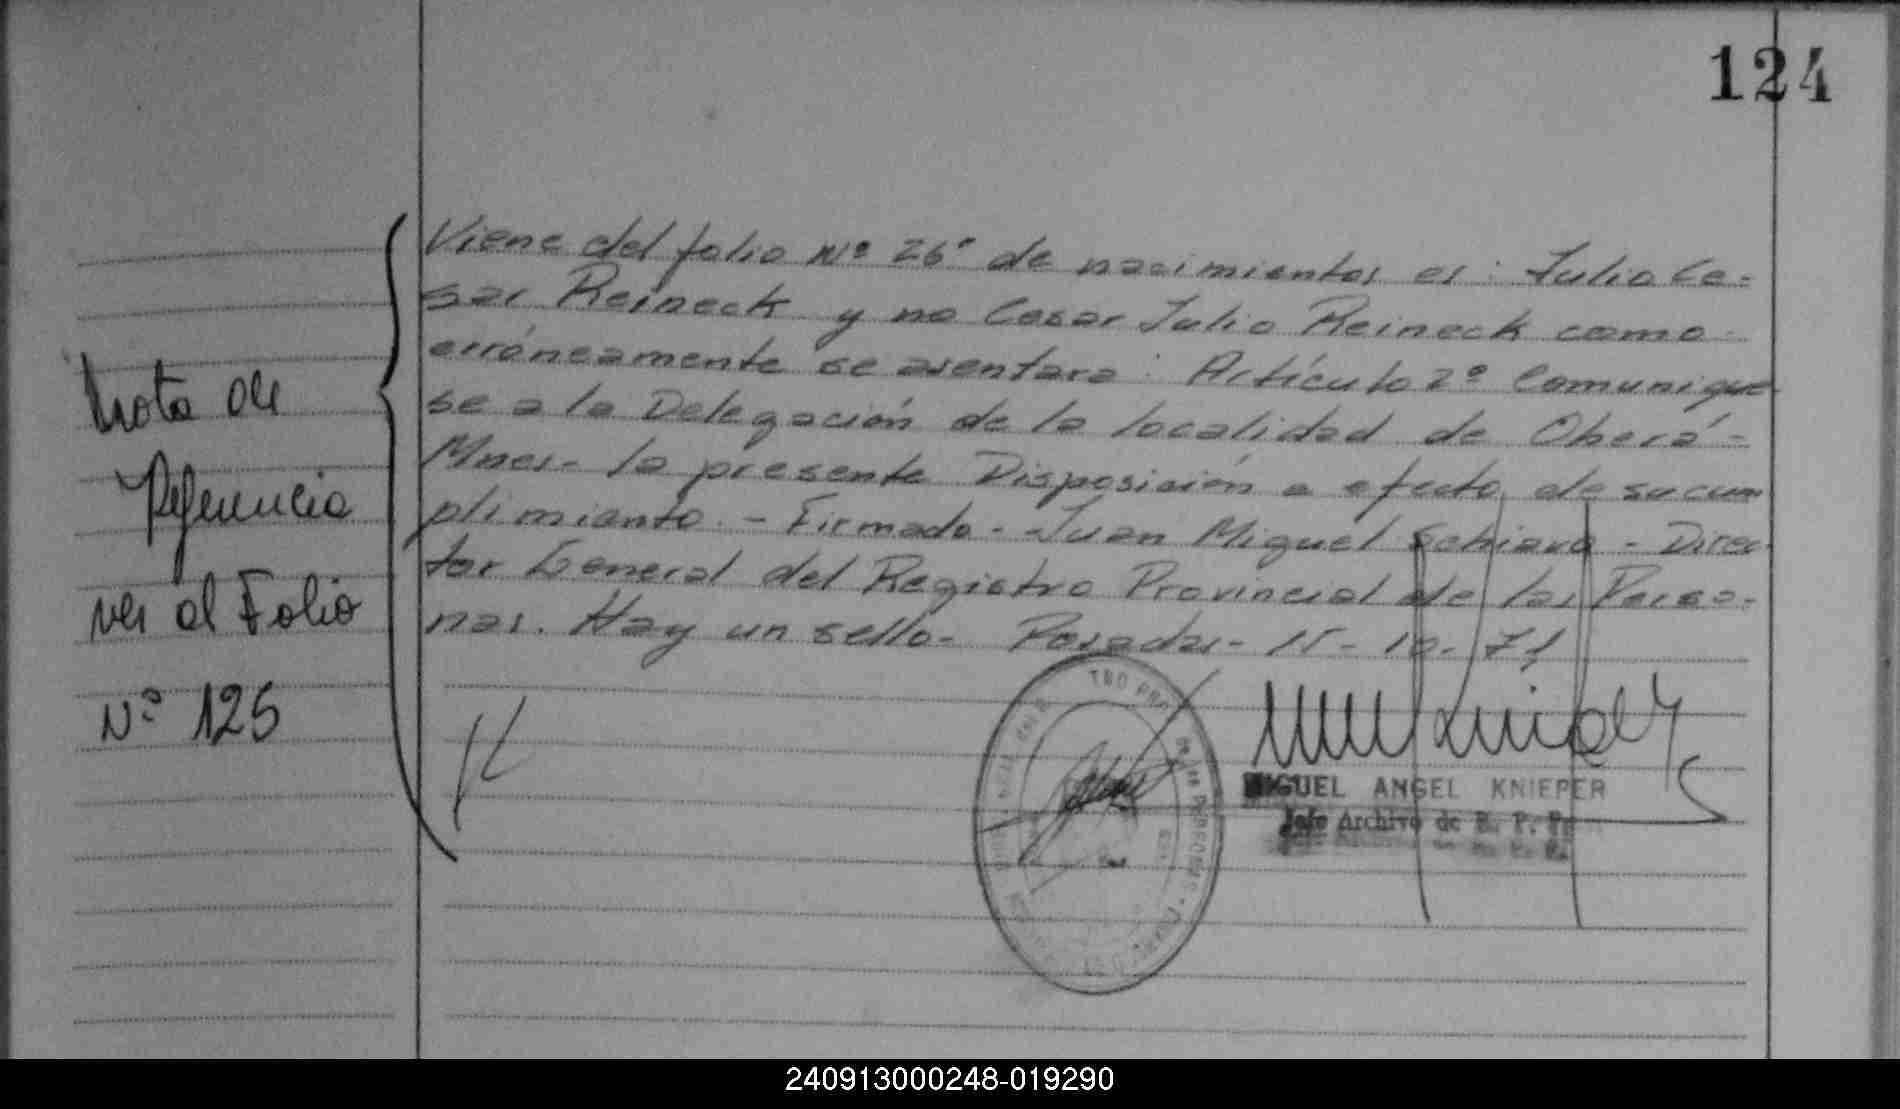 124
Viene del folio Nº 26º de nacimientos es: Julio Ce-
sar Reineck y no Cesar Julio Reineck como
erróneamente se asentara: Artículo 2º Comunique
se a la Delegación de la localidad de Oberá-
Mnes- la presente Disposición a efecto de su cum
plimiento.- Firmado- Juan Miguel Schiavo - Direc
tor General del Registro Provincial de las Perso-
nas. Hay un sello- Posadas- 15-10-71
Nota de
Referencia
ver al Folio
Nº 125
MIGUEL ANGEL KNIEPER
Jefe Archivo de R. P. P.
240913000248-019290